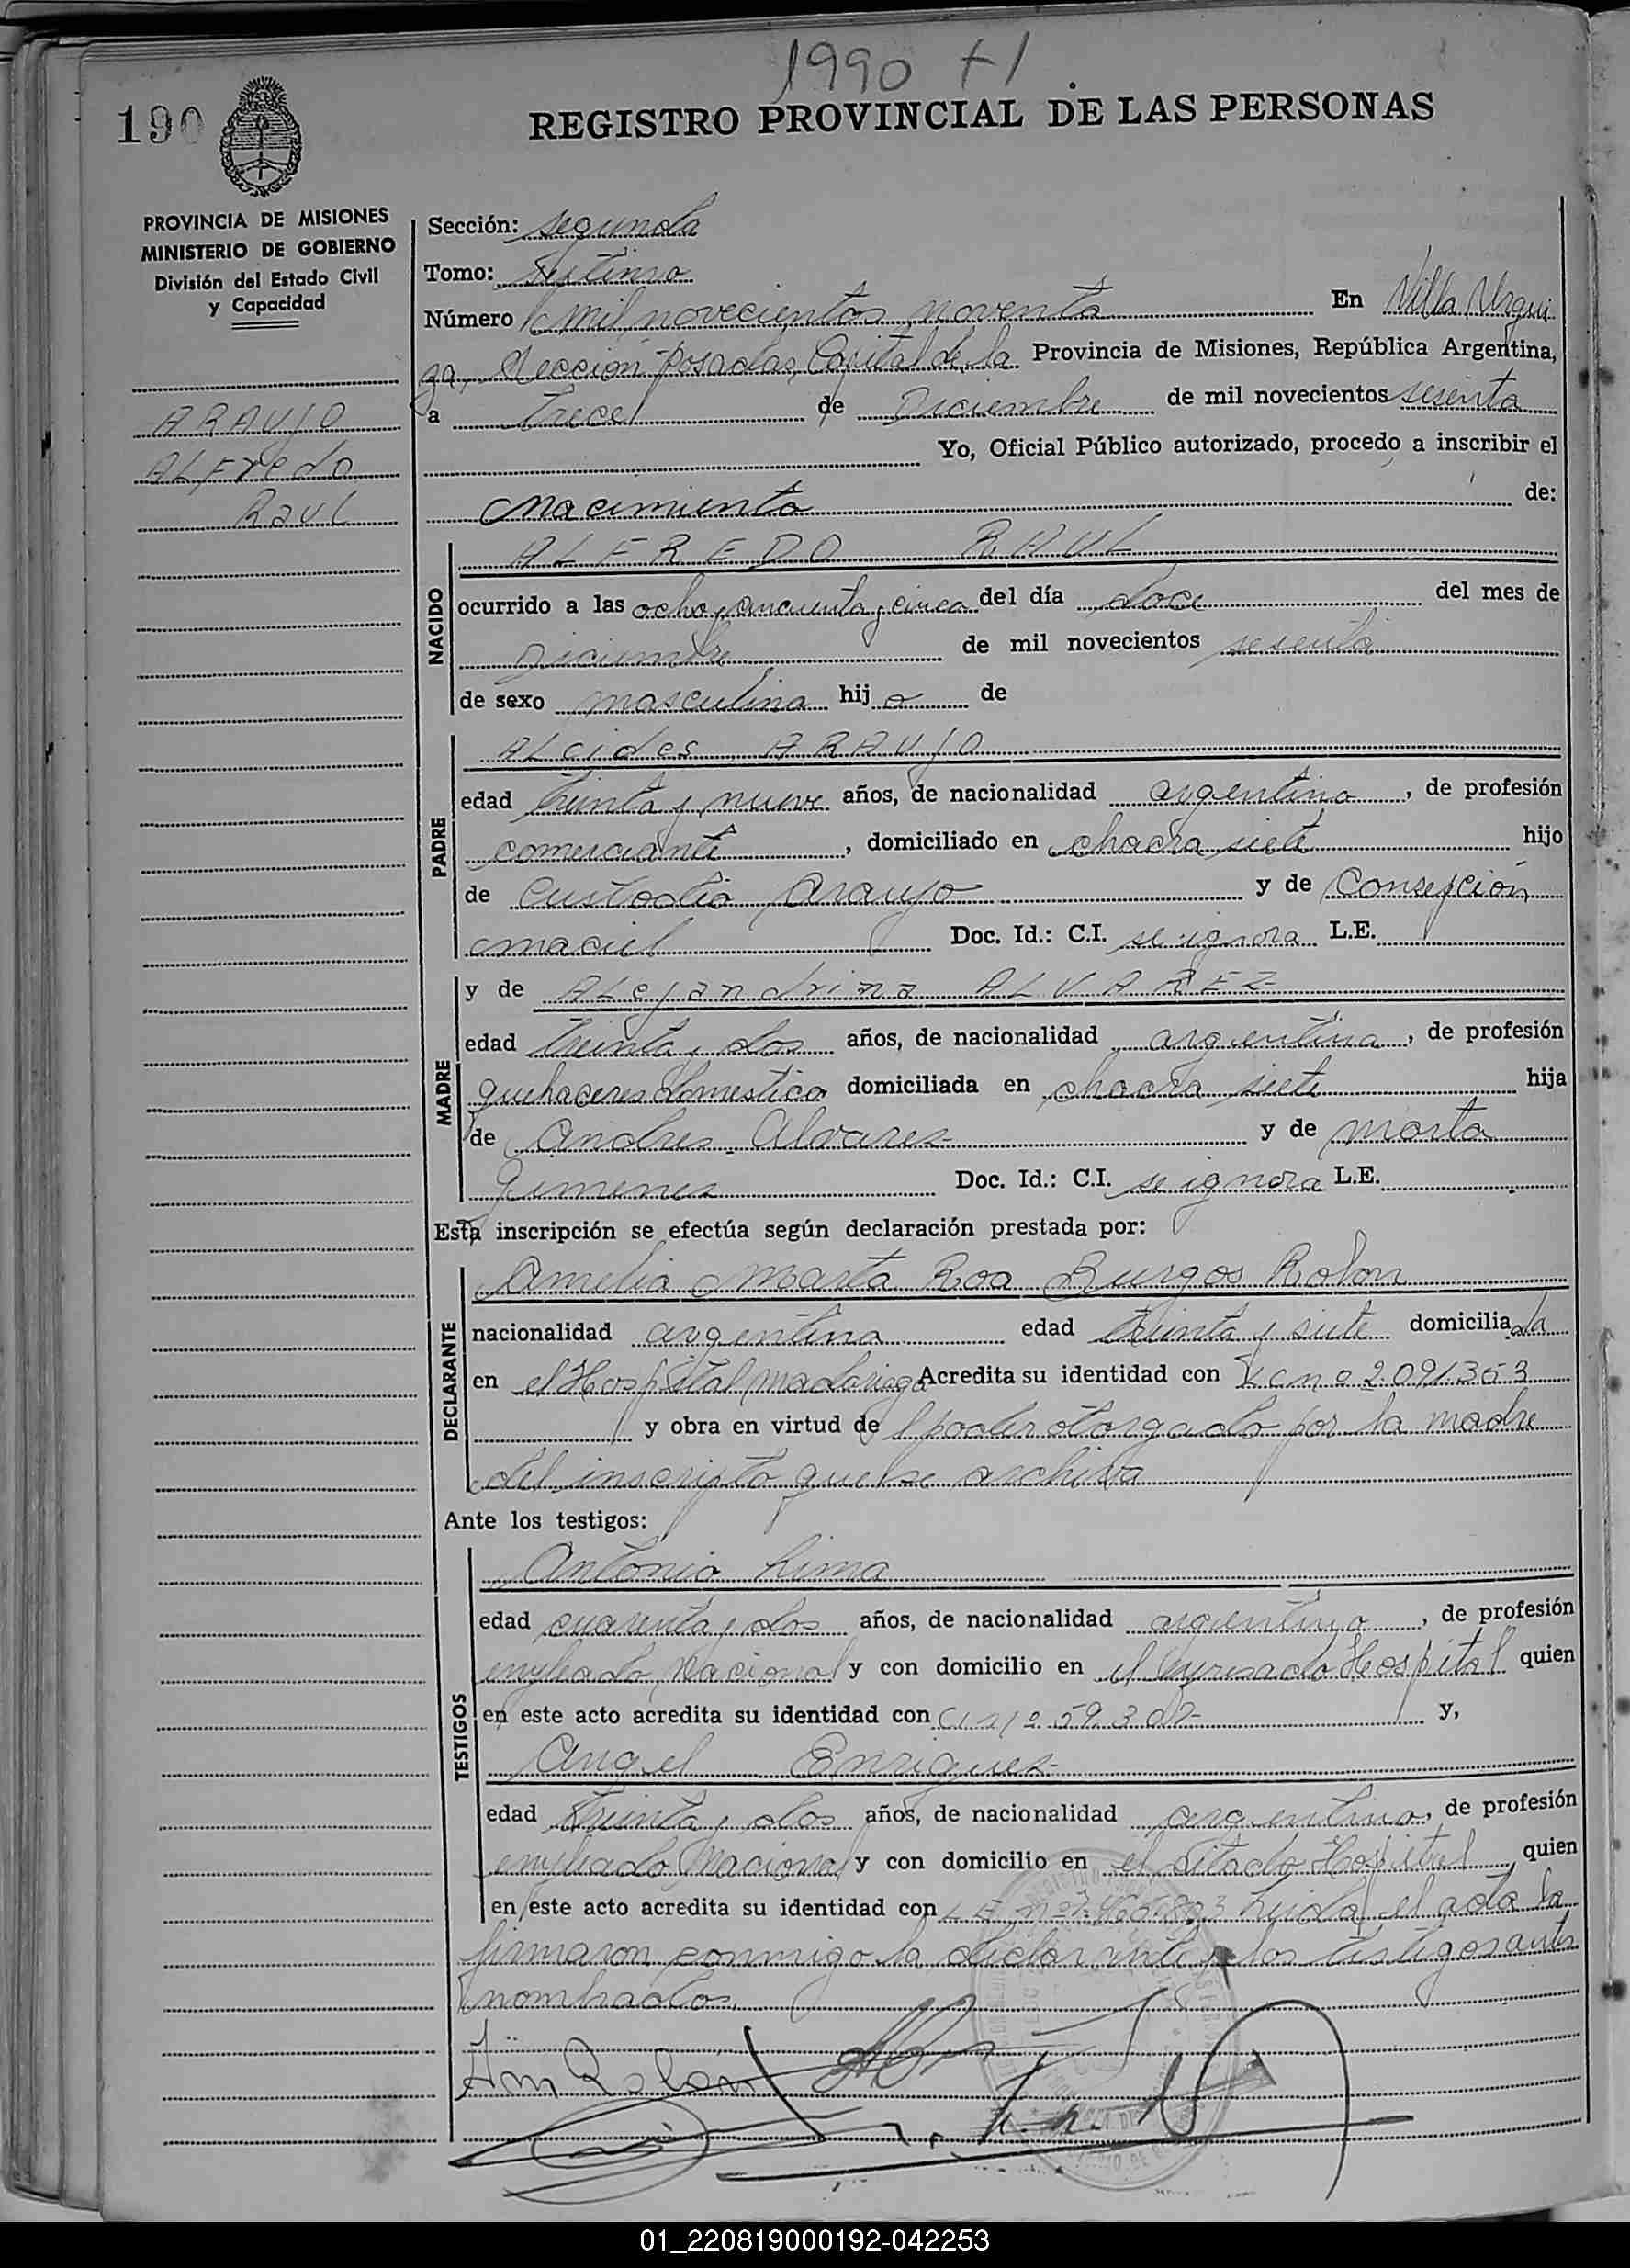 1990 +1
190
REGISTRO PROVINCIAL DE LAS PERSONAS
PROVINCIA DE MISIONES
MINISTERIO DE GOBIERNO
División del Estado Civil
y Capacidad
ARAUJO
ALFredo
Raul
Sección: segunda
Tomo: septimo
Número mil novecientos noventa En Villa Urqui
za, Sección Posadas, Capital de la Provincia de Misiones, República Argentina,
a trece de Diciembre de mil novecientos sesenta
Yo, Oficial Público autorizado, procedo a inscribir el
Nacimiento de:
NACIDO
ALFREDO RAUL
ocurrido a las ocho y cincuenta y cinco del día doce del mes de
Diciembre de mil novecientos sesenta
de sexo masculino hijo de
PADRE
ALcides ARAUJO
edad treinta y nueve años, de nacionalidad argentina, de profesión
comerciante, domiciliado en chacra siete hijo
de Custodio Araujo y de Consepción
maciel Doc. Id.: C.I. se ignora L.E.
MADRE
y de ALejandrina ALVAREZ
edad treinta y dos años, de nacionalidad argentina, de profesión
quehaceres domestico domiciliada en chacra siete hija
de Andres Alvarez y de Marta
Gimenez Doc. Id.: C.I. se ignora L.E.
Esta inscripción se efectúa según declaración prestada por:
DECLARANTE
Amelia Marta Roa Burgos Rolon
nacionalidad argentina edad treinta y siete domiciliada
en el Hospital Madariaga Acredita su identidad con 2.091.353
y obra en virtud del poder otorgado por la madre
del inscripto que se archiva
Ante los testigos:
TESTIGOS
Antonio Lima
edad cuarenta y dos años, de nacionalidad argentino, de profesión
empleado Nacional y con domicilio en el expresado Hospital quien
en este acto acredita su identidad con y,
Angel Enriquez
edad treinta y dos años, de nacionalidad argentino, de profesión
empleado Nacional y con domicilio en el citado Hospital, quien
en este acto acredita su identidad con Leida el acta la
firmaron conmigo la declarante y los testigos antes
nombrados.
01_220819000192-042253